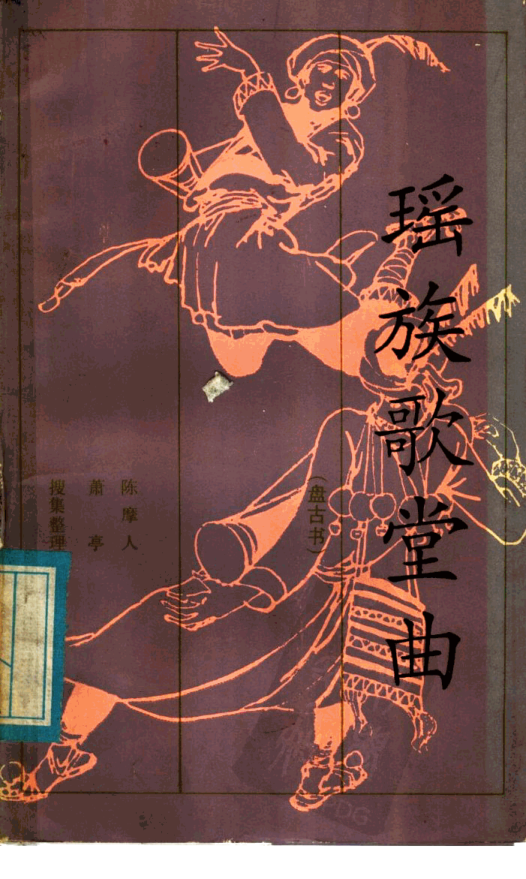 瑶族歌堂曲
(盘古书)
陈摩人
萧亭
搜集整理